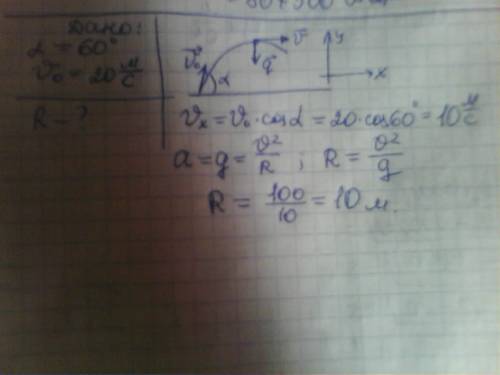 Дано:
α = 60°
v₀ = 20 м/с
R – ?
v₀ α v g y x
vₓ = v₀ · cosα = 20 · cos60° = 10 м/с
a = g = v²/R ; R = v²/g
R = 100/10 = 10 м.